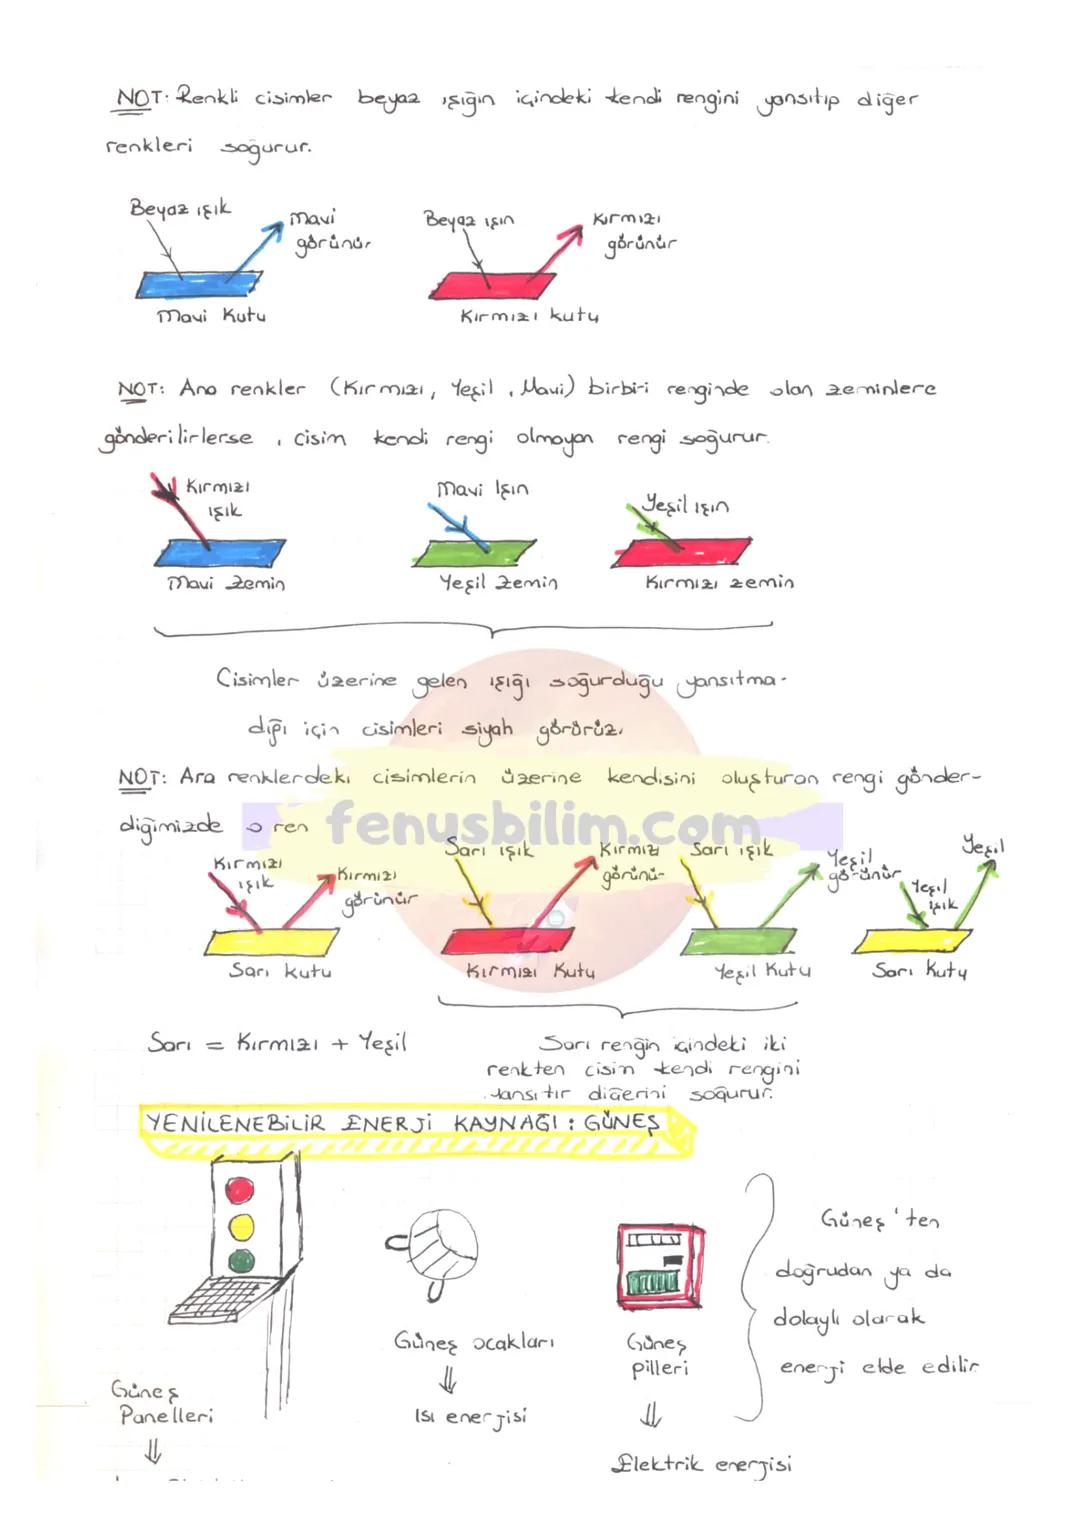 NOT: Renkli cisimler beyaz ışığın içindeki kendi rengini yansıtıp diğer
renkleri soğurur.
Beyaz ışık
Mavi
görünür
Mavi Kutu
Beyaz ışın
Kırmızı
görünür
Kırmızı kutu
NOT: Ana renkler (Kırmızı, Yeşil, Mavi) birbiri renginde olan zeminlere
gönderilirlerse, cisim kendi rengi olmayan rengi soğurur.
Kırmızı
ışık
Mavi Zemin
Mavi Işın
Yeşil Zemin
Yeşil ışın
Kırmızı zemin
Cisimler üzerine gelen ışığı soğurduğu yansıtma-
dığı için cisimleri siyah görürüz.
NOT: Ara renklerdeki cisimlerin üzerine kendisini oluşturan rengi gönder-
diğimizde o ren
fenusbilim.com
Kırmızı
ışık
Kırmızı
görünür
Sarı kutu
Sarı ışık
Kırmızı
görünür
Kırmızı Kutu
Sarı ışık
Yeşil
görünür
Yeşil Kutu
Yeşil
ışık
Yeşil
Sarı Kutu
Sarı = Kırmızı + Yeşil
Sarı rengin içindeki iki
renkten cisim kendi rengini
yansıtır diğerini soğurur.
YENİLENEBİLİR ENERJİ KAYNAĞI : GÜNEŞ
Güneş
Panelleri
⇓
Güneş ocakları
⇓
Isı enerjisi
Güneş
pilleri
⇓
Elektrik enerjisi
Güneş'ten
doğrudan ya da
dolaylı olarak
enerji elde edilir